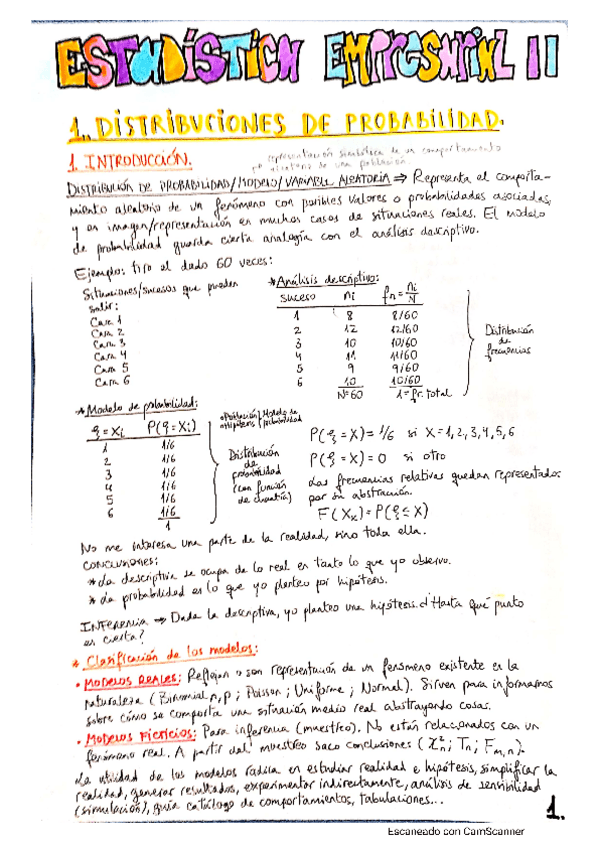 ESTADÍSTICA EMPRESARIAL II
1. DISTRIBUCIONES DE PROBABILIDAD.
1. INTRODUCCIÓN.
representación simbólica de un comportamiento
aleatorio de una población
DISTRIBUCIÓN DE PROBABILIDAD/MODELO/VARIABLE ALEATORIA ⇒ Representa el comporta-
miento aleatorio de un fenómeno con posibles valores o probabilidades asociadas,
y es imagen/representación en muchos casos de situaciones reales. El modelo
de probabilidad guarda cierta analogía con el análisis descriptivo.
Ejemplo: tiro el dado 60 veces:
Situaciones/sucesos que pueden
salir:
Cara 1
Cara 2
Cara 3
Cara 4
Cara 5
Cara 6
* Análisis descriptivo:
suceso ni fn = ni/N
1 8 8/60
2 12 12/60
3 10 10/60
4 11 11/60
5 9 9/60
6 10 10/60
N=60 1= fr. total
Distribución
de
frecuencias
* Modelo de probabilidad:
ξ = Xi P(ξ = Xi)
1 1/6
2 1/6
3 1/6
4 1/6
5 1/6
6 1/6
1
Población/Modelo de
hipótesis/probabilidad
Distribución
de
probabilidad
(con función
de cuantía)
P(ξ = X) = 1/6 si X = 1, 2, 3, 4, 5, 6
P(ξ = X) = 0 si otro
Las frecuencias relativas quedan representadas
por su abstracción.
F(Xx) = P(ξ ≤ X)
No me interesa una parte de la realidad, sino toda ella.
CONCLUSIONES:
* La descriptiva se ocupa de lo real en tanto lo que yo observo.
* La probabilidad es lo que yo planteo por hipótesis.
INFERENCIA ⇒ Dada la descriptiva, yo planteo una hipótesis. ¿Hasta qué punto
es cierta?
* Clasificación de los modelos:
• MODELOS REALES: Reflejan o son representación de un fenómeno existente en la
naturaleza (Binomial n,p ; Poisson ; Uniforme ; Normal). Sirven para informarnos
sobre cómo se comporta una situación medio real abstrayendo cosas.
• MODELOS FICTICIOS: Para inferencia (muestreo). No están relacionados con un
fenómeno real. A partir del muestreo saco conclusiones (χ²n ; Tn ; Fm,n).
La utilidad de los modelos radica en estudiar realidad e hipótesis, simplificar la
realidad, generar resultados, experimentar indirectamente, análisis de sensibilidad
(simulación), guía catálogo de comportamientos, tabulaciones...
1.
Escaneado con CamScanner